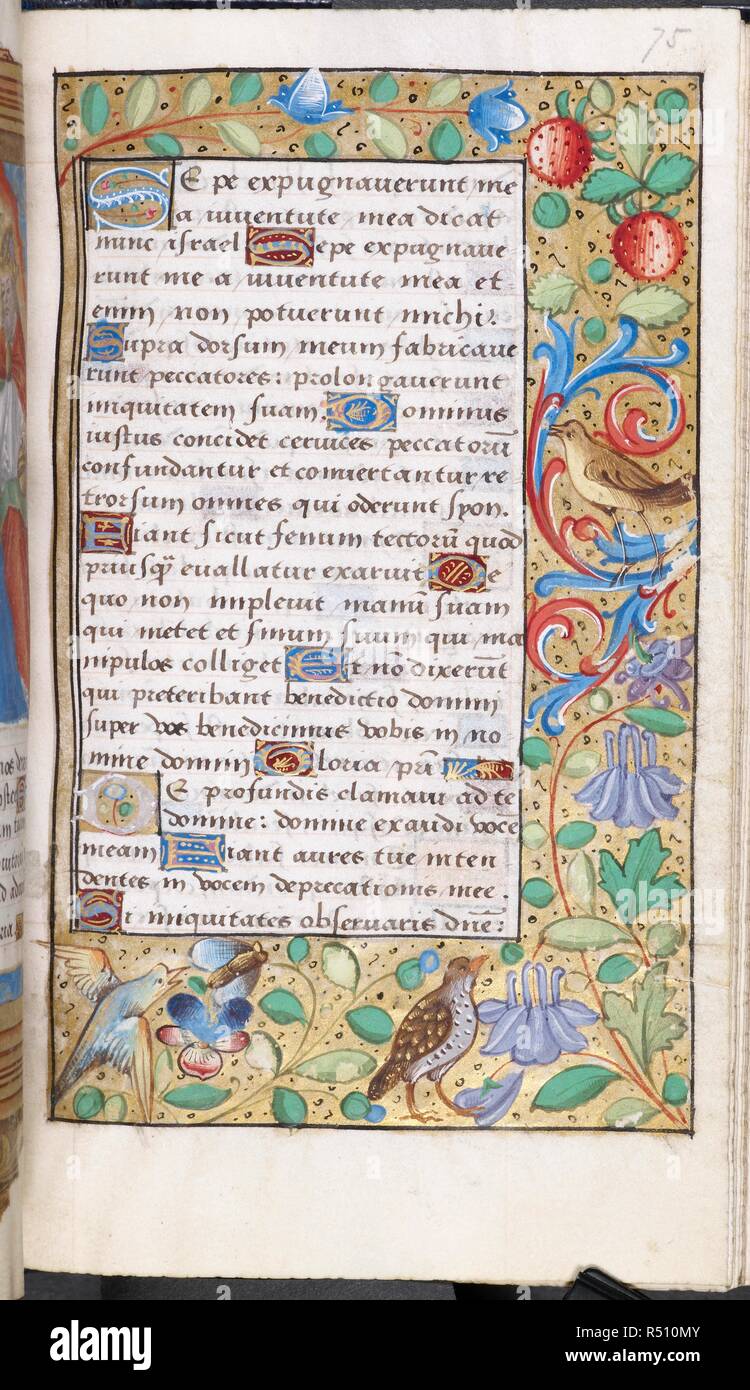 75
Sepe expugnaverunt me
a iuventute mea dicat
nunc israel Sepe expugnave
runt me a iuventute mea et
enim non potuerunt michi.
Supra dorsum meum fabricave
runt peccatores: prolongaverunt
iniquitatem suam. Dominus
iustus concidet cervices peccatorū
confundantur et convertantur re
trorsum omnes qui oderunt syon.
Fiant sicut fenum tectorū quod
priusq̄ evallatur exaruit De
quo non implevit manū suam
qui metet et sinum suum qui ma
nipulos colliget Et nō dixerūt
qui preteribant benedictio domini
super vos benedicimus vobis in no
mine domini Gloria pr̄i
De profundis clamavi ad te
domine: domine exaudi vocē
meam Fiant aures tue inten
dentes in vocem deprecationis mee.
Si iniquitates observaris dn̄e:
alamy
Image ID: R510MY
www.alamy.com